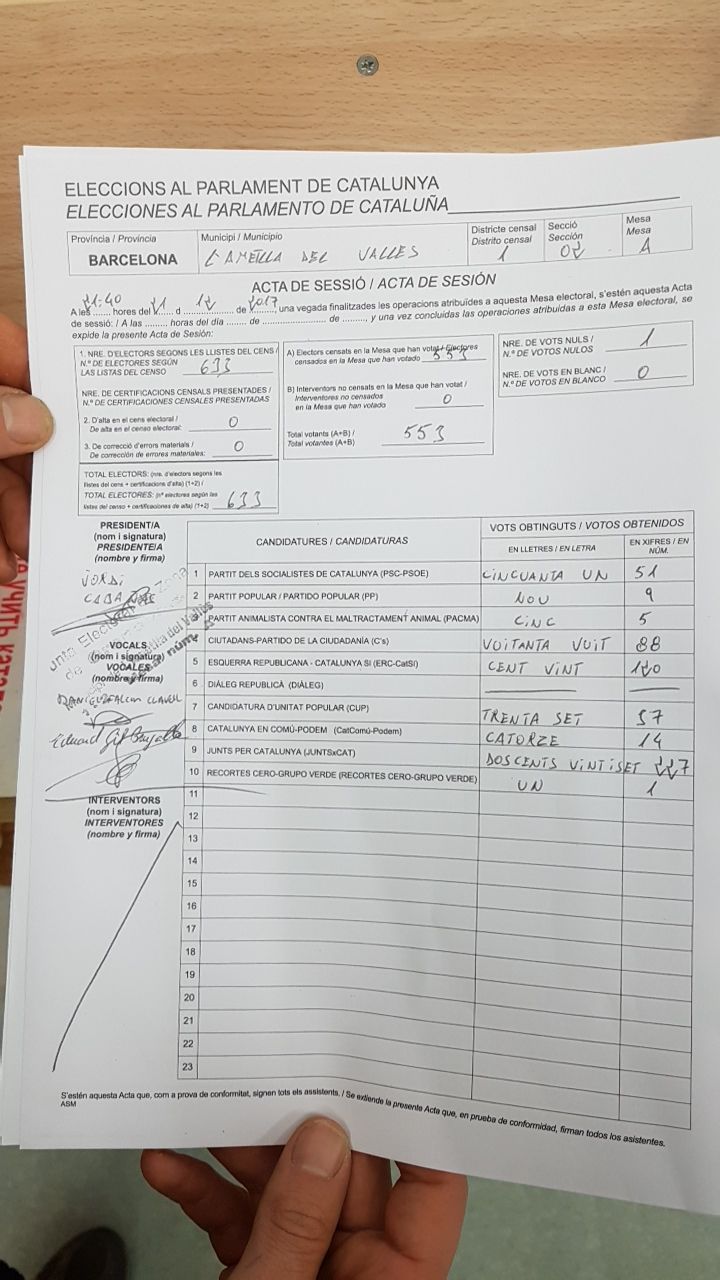 ELECCIONS AL PARLAMENT DE CATALUNYA
ELECCIONES AL PARLAMENTO DE CATALUÑA
Província / Provincia
BARCELONA
Municipi / Municipio
L'AMETLLA DEL VALLES
Districte censal
Distrito censal
1
Secció
Sección
02
Mesa
Mesa
A
ACTA DE SESSIÓ / ACTA DE SESIÓN
A les 21:40 hores del 21 d 12 de 2017, una vegada finalitzades les operacions atribuïdes a aquesta Mesa electoral, s'estén aquesta Acta
de sessió: / A las ........ horas del día ....... de ........................ de ........, y una vez concluidas las operaciones atribuidas a esta Mesa electoral, se
expide la presente Acta de Sesión:
1. NRE. D'ELECTORS SEGONS LES LLISTES DEL CENS /
N.º DE ELECTORES SEGÚN
LAS LISTAS DEL CENSO
633
NRE. DE CERTIFICACIONS CENSALS PRESENTADES /
N.º DE CERTIFICACIONES CENSALES PRESENTADAS
2. D'alta en el cens electoral /
De alta en el censo electoral:
0
3. De correcció d'errors materials /
De corrección de errores materiales:
0
TOTAL ELECTORS: (nre. d'electors segons les
llistes del cens + certificacions d'alta) (1+2) /
TOTAL ELECTORES: (nº electores según las
listas del censo + certificaciones de alta) (1+2)
633
A) Electors censats en la Mesa que han votat / Electores
censados en la Mesa que han votado
553
B) Interventors no censats en la Mesa que han votat /
Interventores no censados
en la Mesa que han votado
0
Total votants (A+B) /
Total votantes (A+B)
553
NRE. DE VOTS NULS /
N.º DE VOTOS NULOS
1
NRE. DE VOTS EN BLANC /
N.º DE VOTOS EN BLANCO
0
PRESIDENT/A
(nom i signatura)
PRESIDENTE/A
(nombre y firma)
JORDI
VOCALS
(nom i signatura)
VOCALES
(nombre y firma)
INTERVENTORS
(nom i signatura)
INTERVENTORES
(nombre y firma)
CANDIDATURES / CANDIDATURAS
VOTS OBTINGUTS / VOTOS OBTENIDOS
EN LLETRES / EN LETRA
EN XIFRES / EN NÚM.
1 PARTIT DELS SOCIALISTES DE CATALUNYA (PSC-PSOE) CINCUANTA UN 51
2 PARTIT POPULAR / PARTIDO POPULAR (PP) NOU 9
PARTIT ANIMALISTA CONTRA EL MALTRACTAMENT ANIMAL (PACMA) CINC 5
CIUTADANS-PARTIDO DE LA CIUDADANÍA (C's) VOITANTA VUIT 88
5 ESQUERRA REPUBLICANA - CATALUNYA SÍ (ERC-CatSí) CENT VINT 120
6 DIÀLEG REPUBLICÀ (DIÀLEG)
7 CANDIDATURA D'UNITAT POPULAR (CUP) TRENTA SET 37
8 CATALUNYA EN COMÚ-PODEM (CatComú-Podem) CATORZE 14
9 JUNTS PER CATALUNYA (JUNTSxCAT) DOSCENTS VINTISET 227
10 RECORTES CERO-GRUPO VERDE (RECORTES CERO-GRUPO VERDE) UN 1
11
12
13
14
15
16
17
18
19
20
21
22
23
S'estén aquesta Acta que, com a prova de conformitat, signen tots els assistents. / Se extiende la presente Acta que, en prueba de conformidad, firman todos los asistentes.
ASM